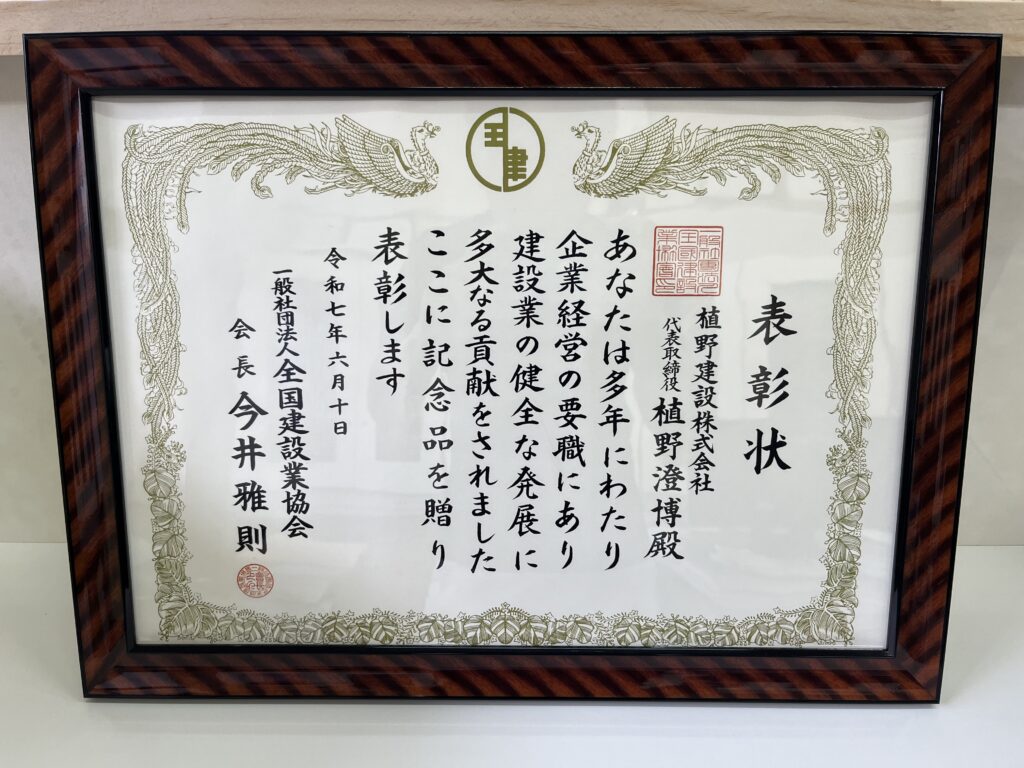 全建
表彰状
植野建設株式会社
代表取締役 植野澄博殿
あなたは多年にわたり
企業経営の要職にあり
建設業の健全な発展に
多大なる貢献をされました
ここに記念品を贈り
表彰します
令和七年六月十日
一般社団法人全国建設業協会
会長 今井雅則